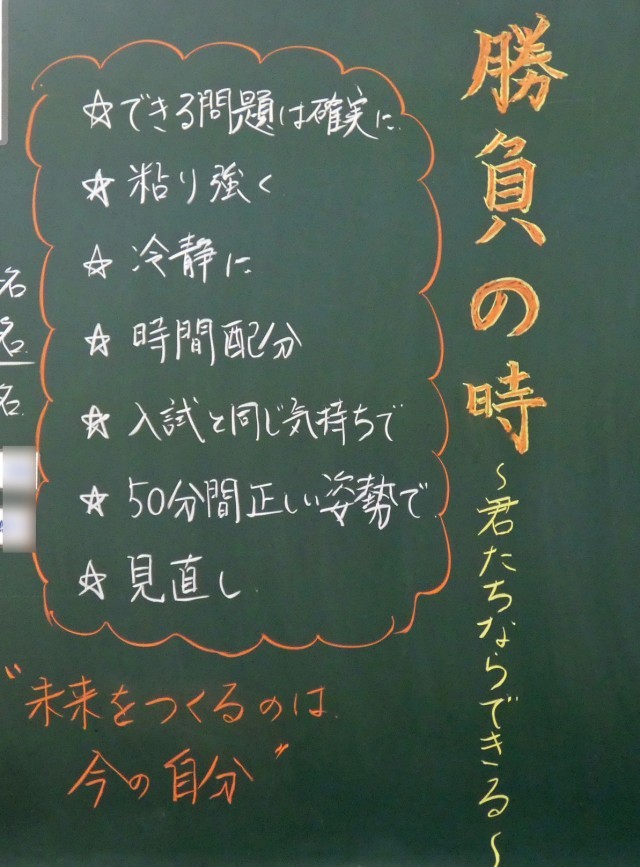 勝負の時
～君たちならできる～
☆できる問題は確実に
☆粘り強く
☆冷静に
☆時間配分
☆入試と同じ気持ちで
☆50分間正しい姿勢で
☆見直し
"未来をつくるのは
今の自分"
名
名
名